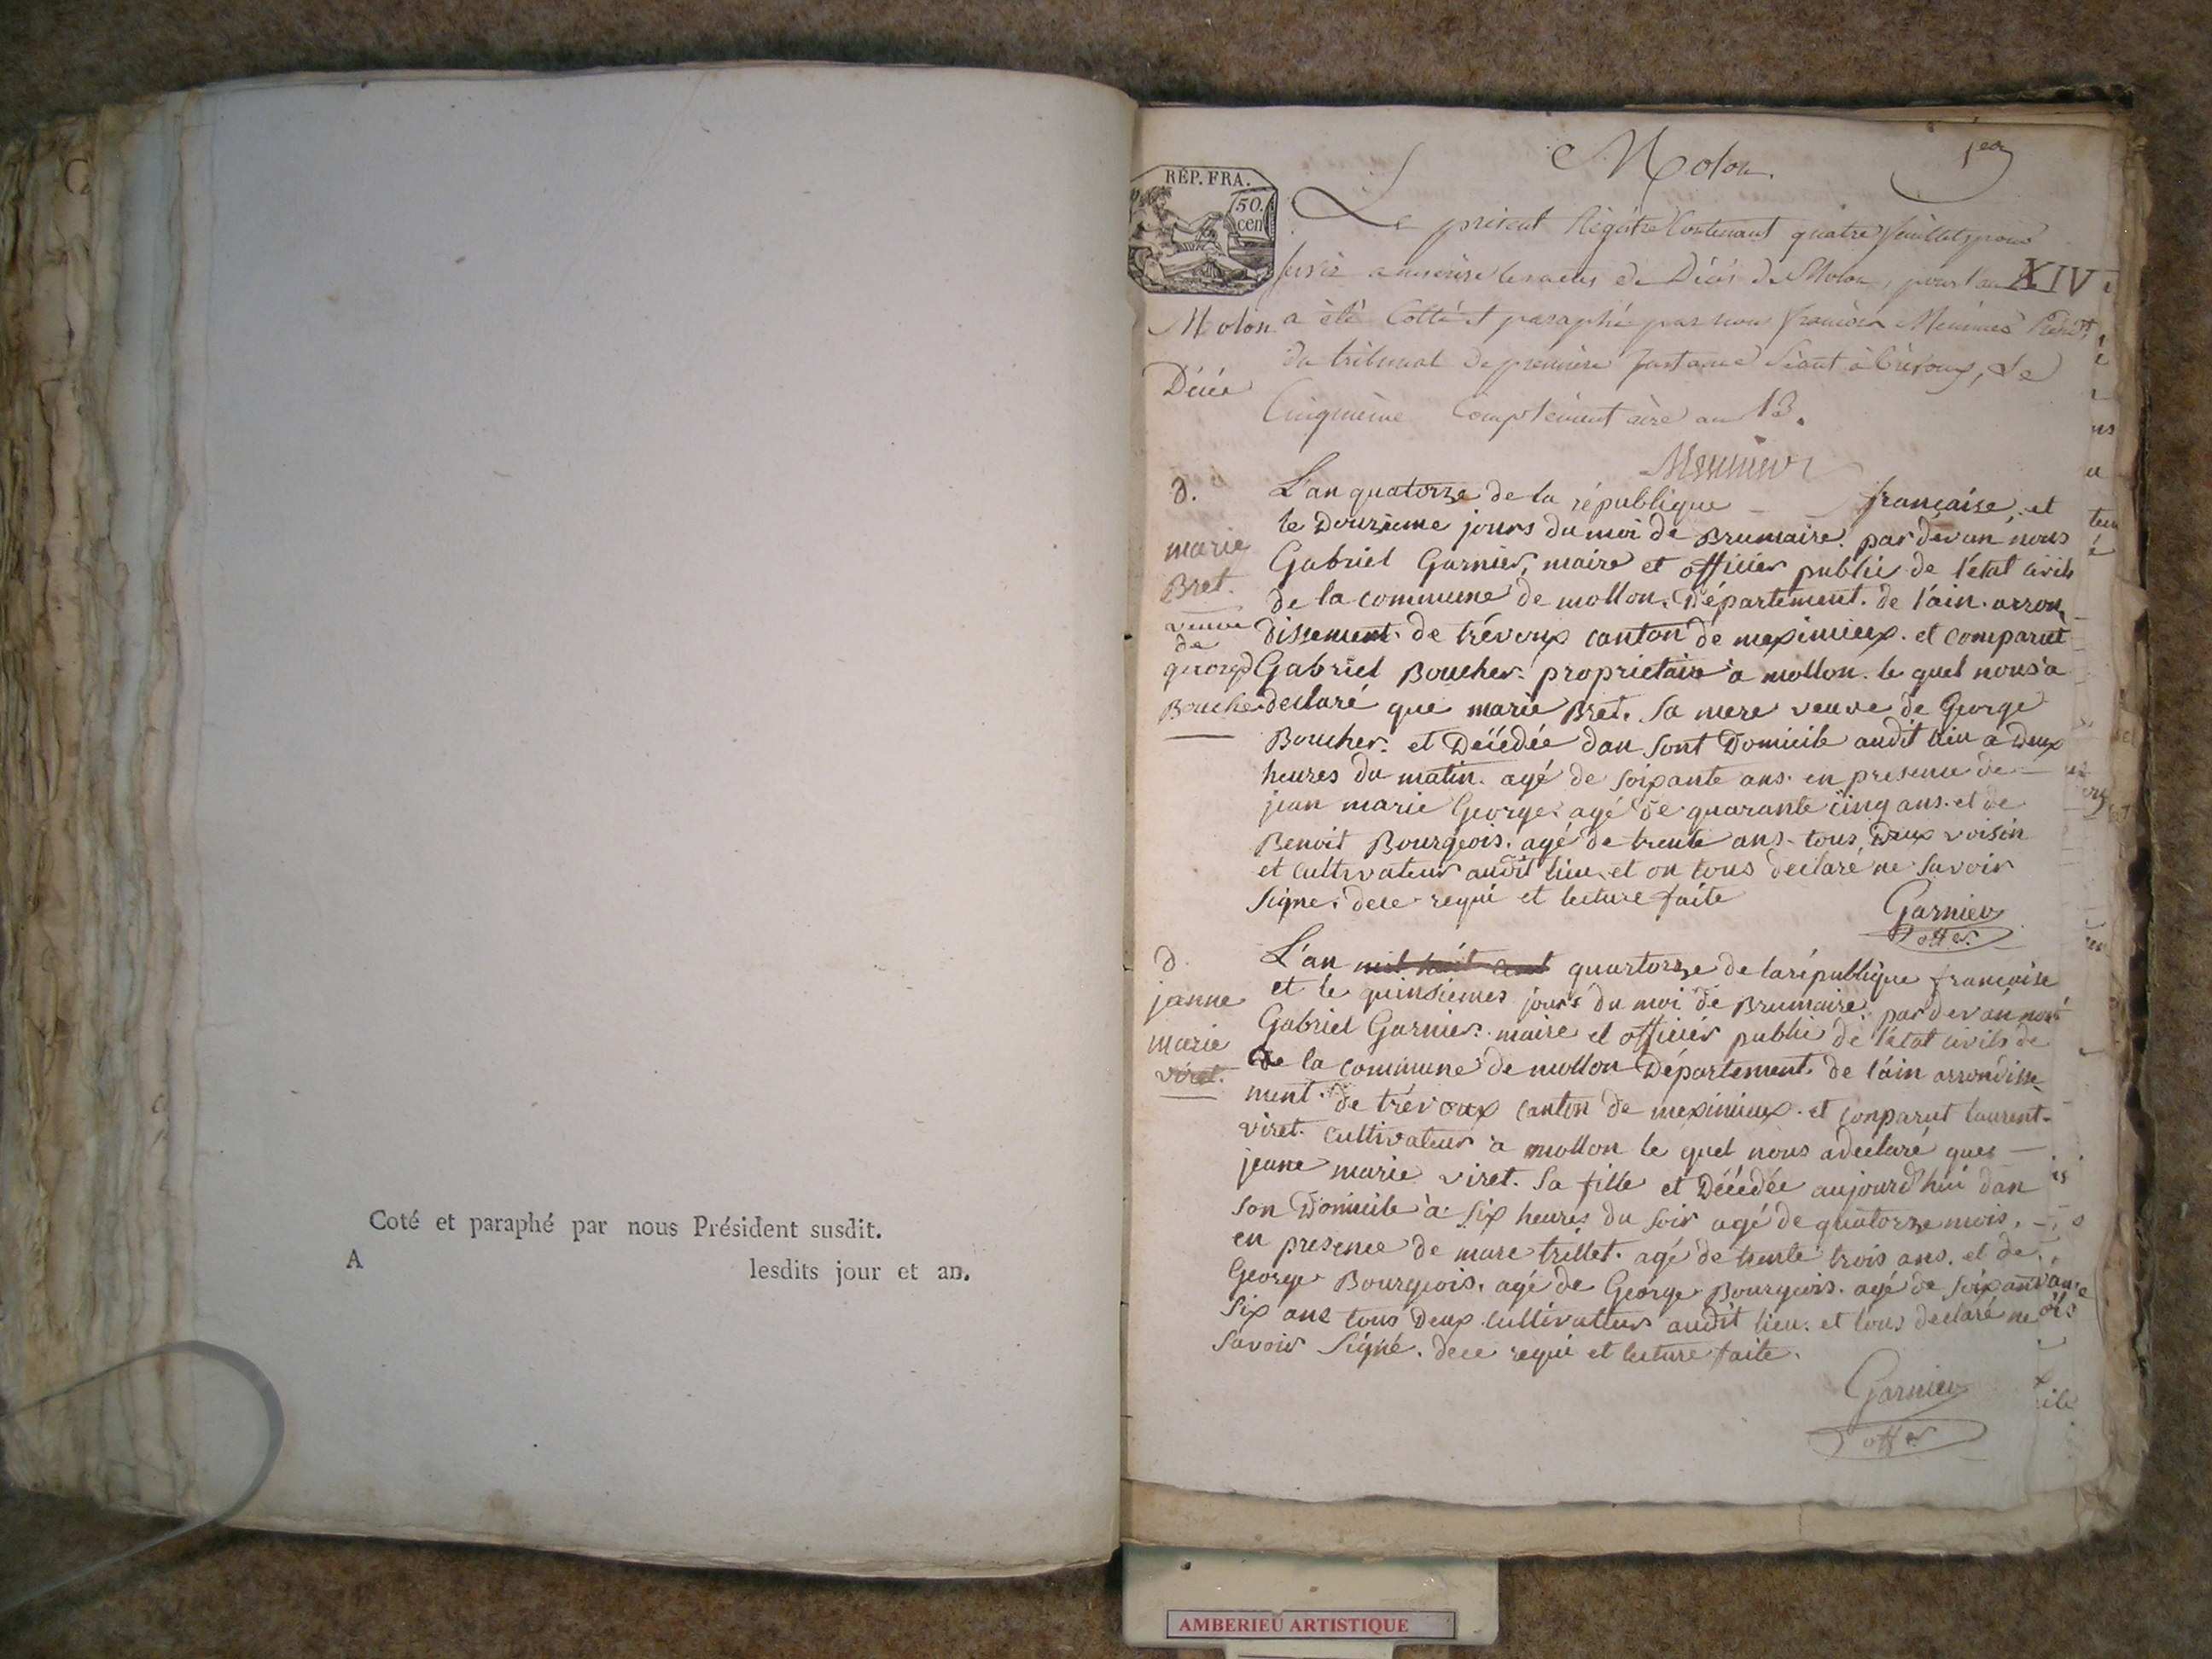 Coté et paraphé par nous Président susdit.
A lesdits jour et an.
Molon. 1er
REP. FRA.
50. cen
Le présent Régistre Contenant quatre feuillets pour
servir a inscrire les actes de Décés de Molon, pour l'an XIV
a été Cotté et paraphé par nous François Présidt
du tribunal de première Instance Séant à Trévoux, Le
Cinquième Complémentaire an 13.
Molon
Décée
d.
marie
Bret.
veuve
de
george
Boucher
L'an quatorze de la république française, et
le Douzieme jours du moi de Brumaire. par devan nous
Gabriel Garnier, maire et officier public de l'état civils
de la commune de mollon. Département. de l'ain. arron
dissement. de trévoux canton de meximieux. et comparut
Gabriel Boucher. proprietaire a mollon. le quel nous a
declaré que marie Bret. sa mere veuve de George
Boucher. et Décédée dan sont Domicile audit lieu a Deux
heures du matin. agé de soixante ans. en presence de
jean marie George. agé de quarante cinq ans. et de
Benoit Bourgeois. agé de trente ans. tous Deux voisin
et cultivateur audit lieu. et on tous declaré ne savoir
signe. dece requi et lecture faite
Garnier
d.
janne
marie
viret.
L'an mil huit cent quartorze de la république francaise
et le quinsiemes jours du moi de Brumaire. par devan nous
Gabriel Garnier. maire et officier public de l'état civils de
de la commune de mollon Département. de l'ain arrondisse
ment. de trévoux canton de meximieux. et conparut laurent
viret. cultivateur a mollon le quel nous a declaré que
jeane marie viret. sa fille et Décédée aujourd'hui dan
son Domicile à six heures du soir agé de quatorze mois.
en presence de marc trillet. agé de trente trois ans. et de
George Bourgeois. agé de George Bourgeois. agé de soixante
six ans tous Deux cultivateur audit lieu. et tous declaré ne
savoir signé. dece requi et lecture faite.
Garnier
AMBERIEU ARTISTIQUE